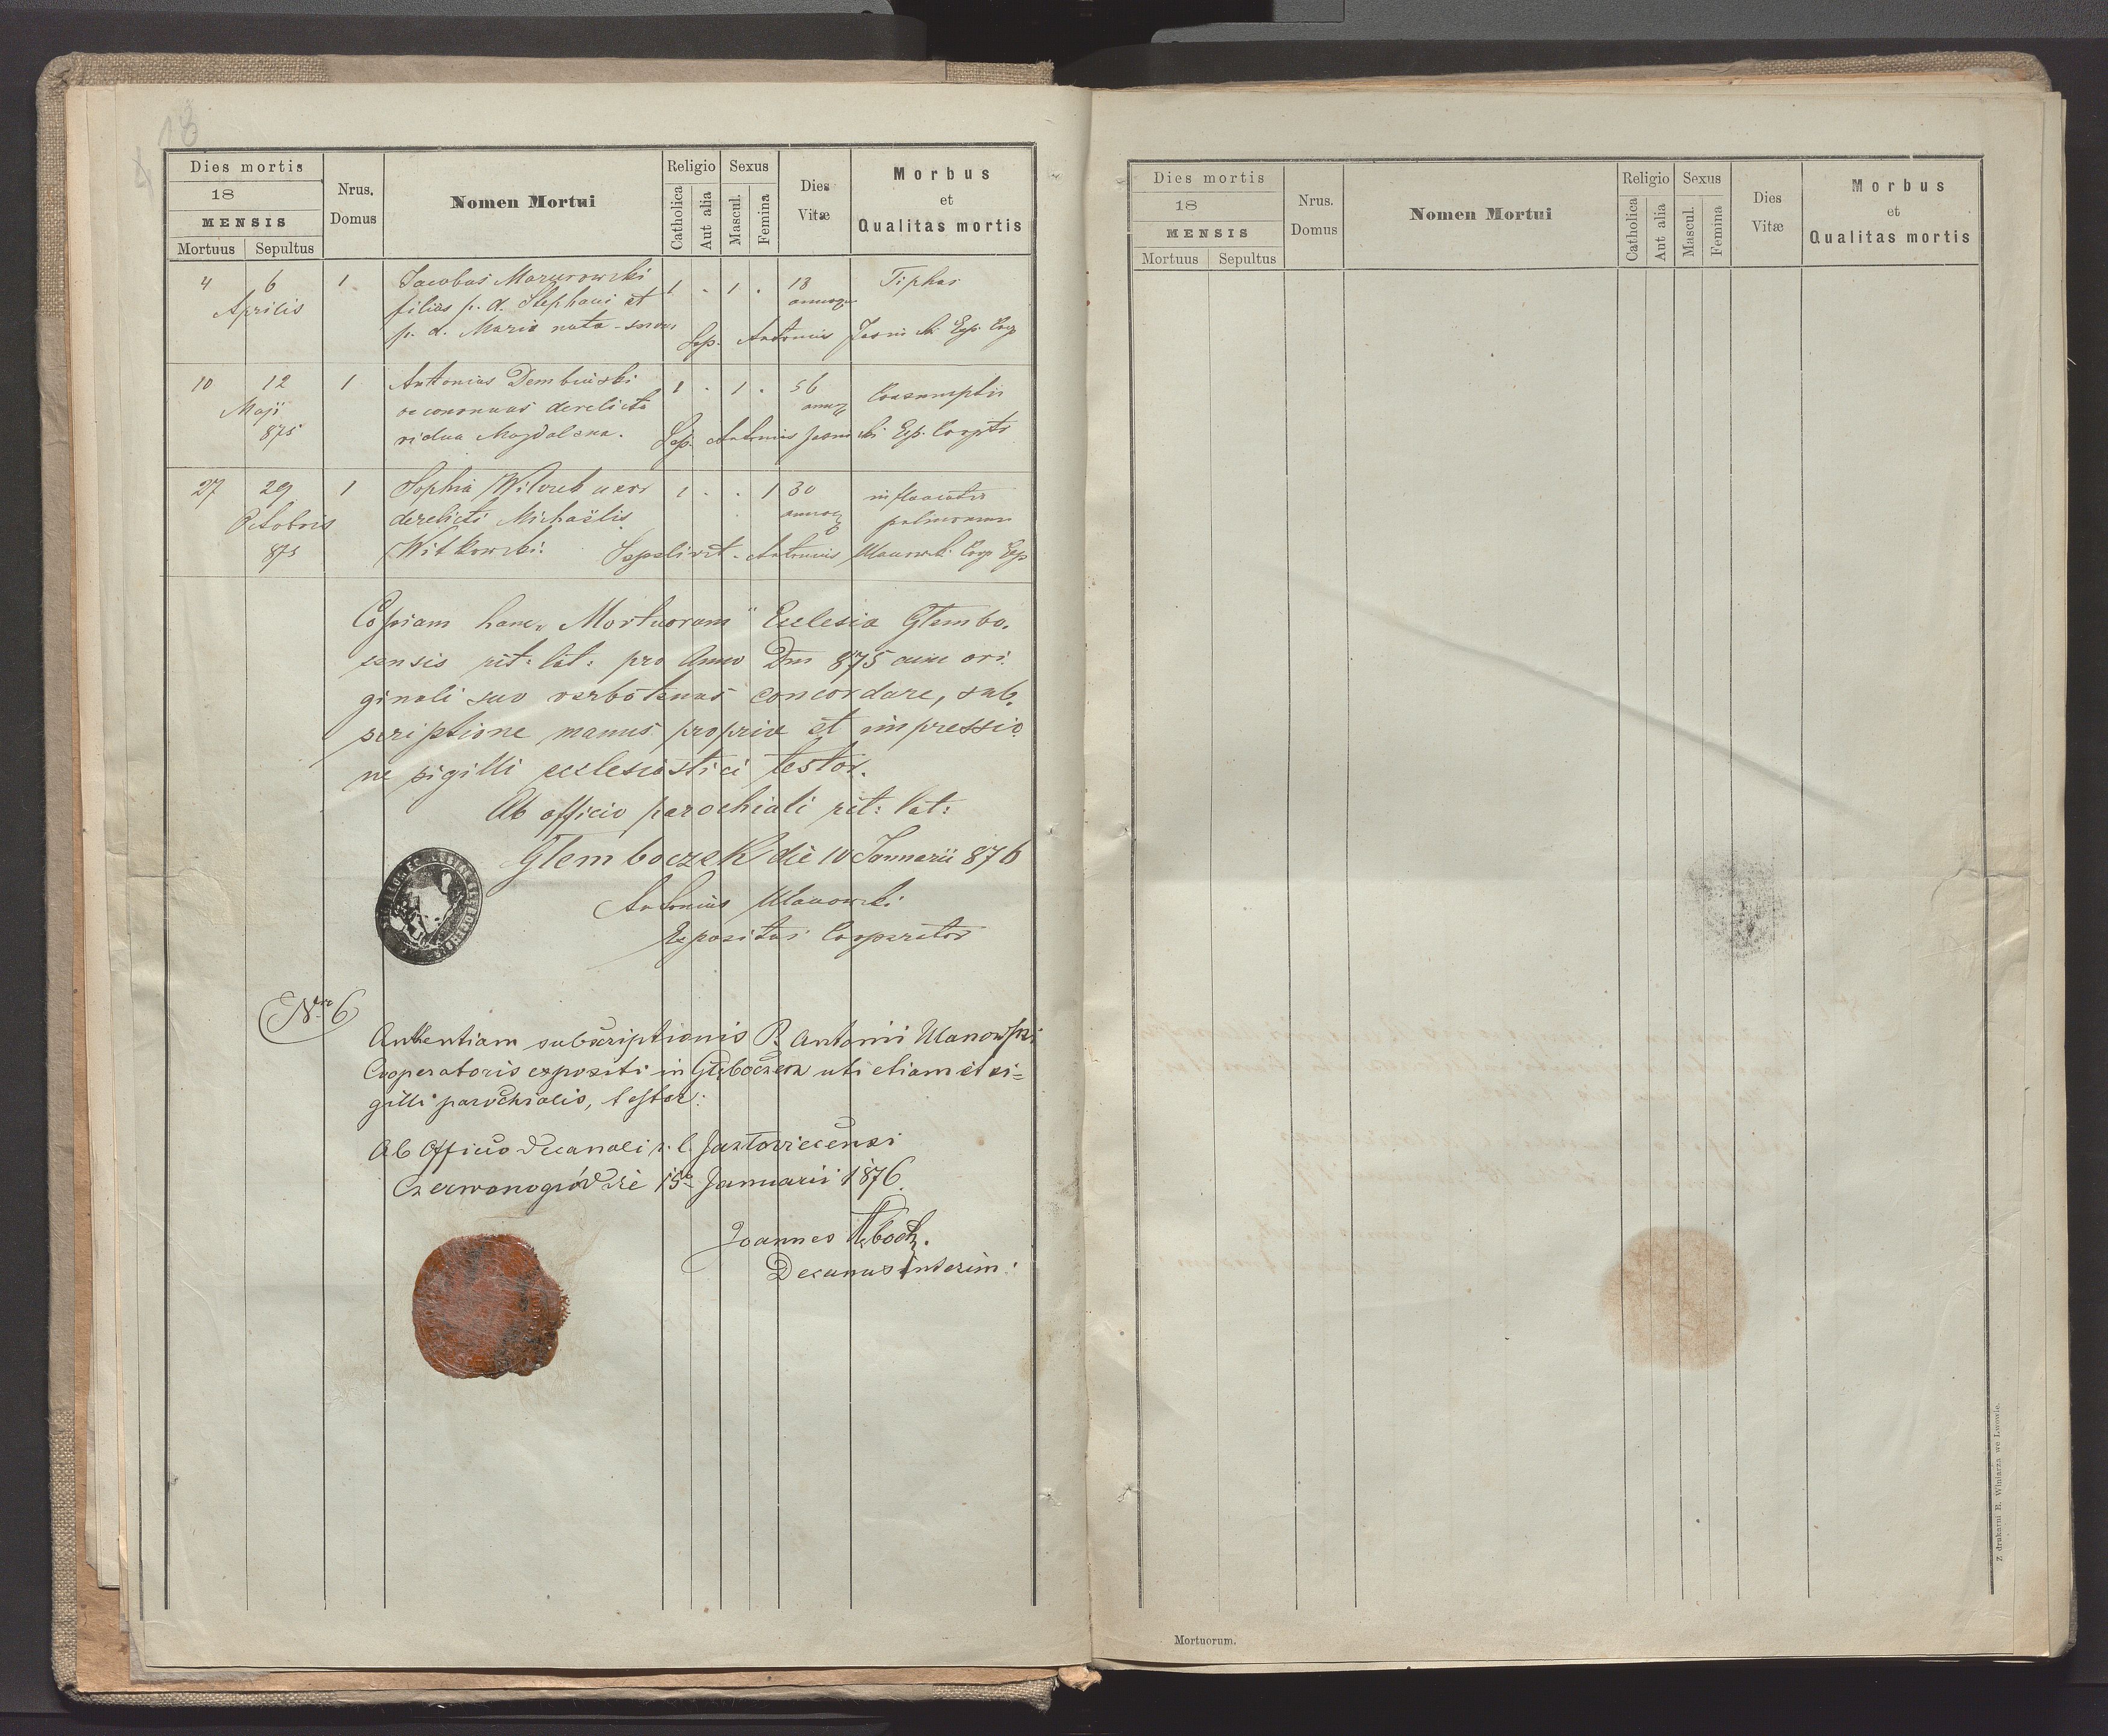 18
Dies mortis
18
MENSIS
Mortuus Sepultus
Nrus.
Domus
Nomen Mortui
Religio
Catholica
Aut alia
Sexus
Mascul.
Femina
Dies
Vitæ
Morbus
et
Qualitas mortis
4 6 1 Jacobus Mazurowski 1 . 1 . 18 Tiphus
Aprilis filius p. d. Stephani et
p. d. Maria nata Sep. Antonius Exp. Coop
10 12 1 Antonius Dembiński 1 . 1 . 56 Consumptio
Maji oeconomus derelicta
875 vidua Magdalena. Sep. Antonius Exp. Coopr
27 29 1 Sophia uxor 1 . . 1 30 inflamatio
Octobris derelicti Michaëlis pulmonum
875 Witkowski. Sepelivit Antonius Ulanowski Coop Exp
Copiam hanc „Mortuorum" Ecclesia Glembo.
censis rit: lat: pro Anno Dni 875 cum ori.
ginali suo verbotenus concordare, sub.
scriptione manus propriæ et impressio
ne sigilli ecclesiastici testor.
Ab officio parochiali rit: lat:
Glemboczek die 10 Januarii 876
Antonius Ulanowski
Expositus Cooperator
Nro 6
Authentiam subscriptionis R. Antonii Ulanowski
Cooperatoris expositi in Głęboczek uti etiam et si=
gilli parochialis, testor:
Ab Officio Decanali r. l. Jazłoviecensi
Czerwonogród die 15a Januarii 1876.
Joannes
Decanus interim:
Dies mortis
18
MENSIS
Mortuus Sepultus
Nrus.
Domus
Nomen Mortui
Religio
Catholica
Aut alia
Sexus
Mascul.
Femina
Dies
Vitæ
Morbus
et
Qualitas mortis
Z drukarni E. Winiarza we Lwowie.
Mortuorum.